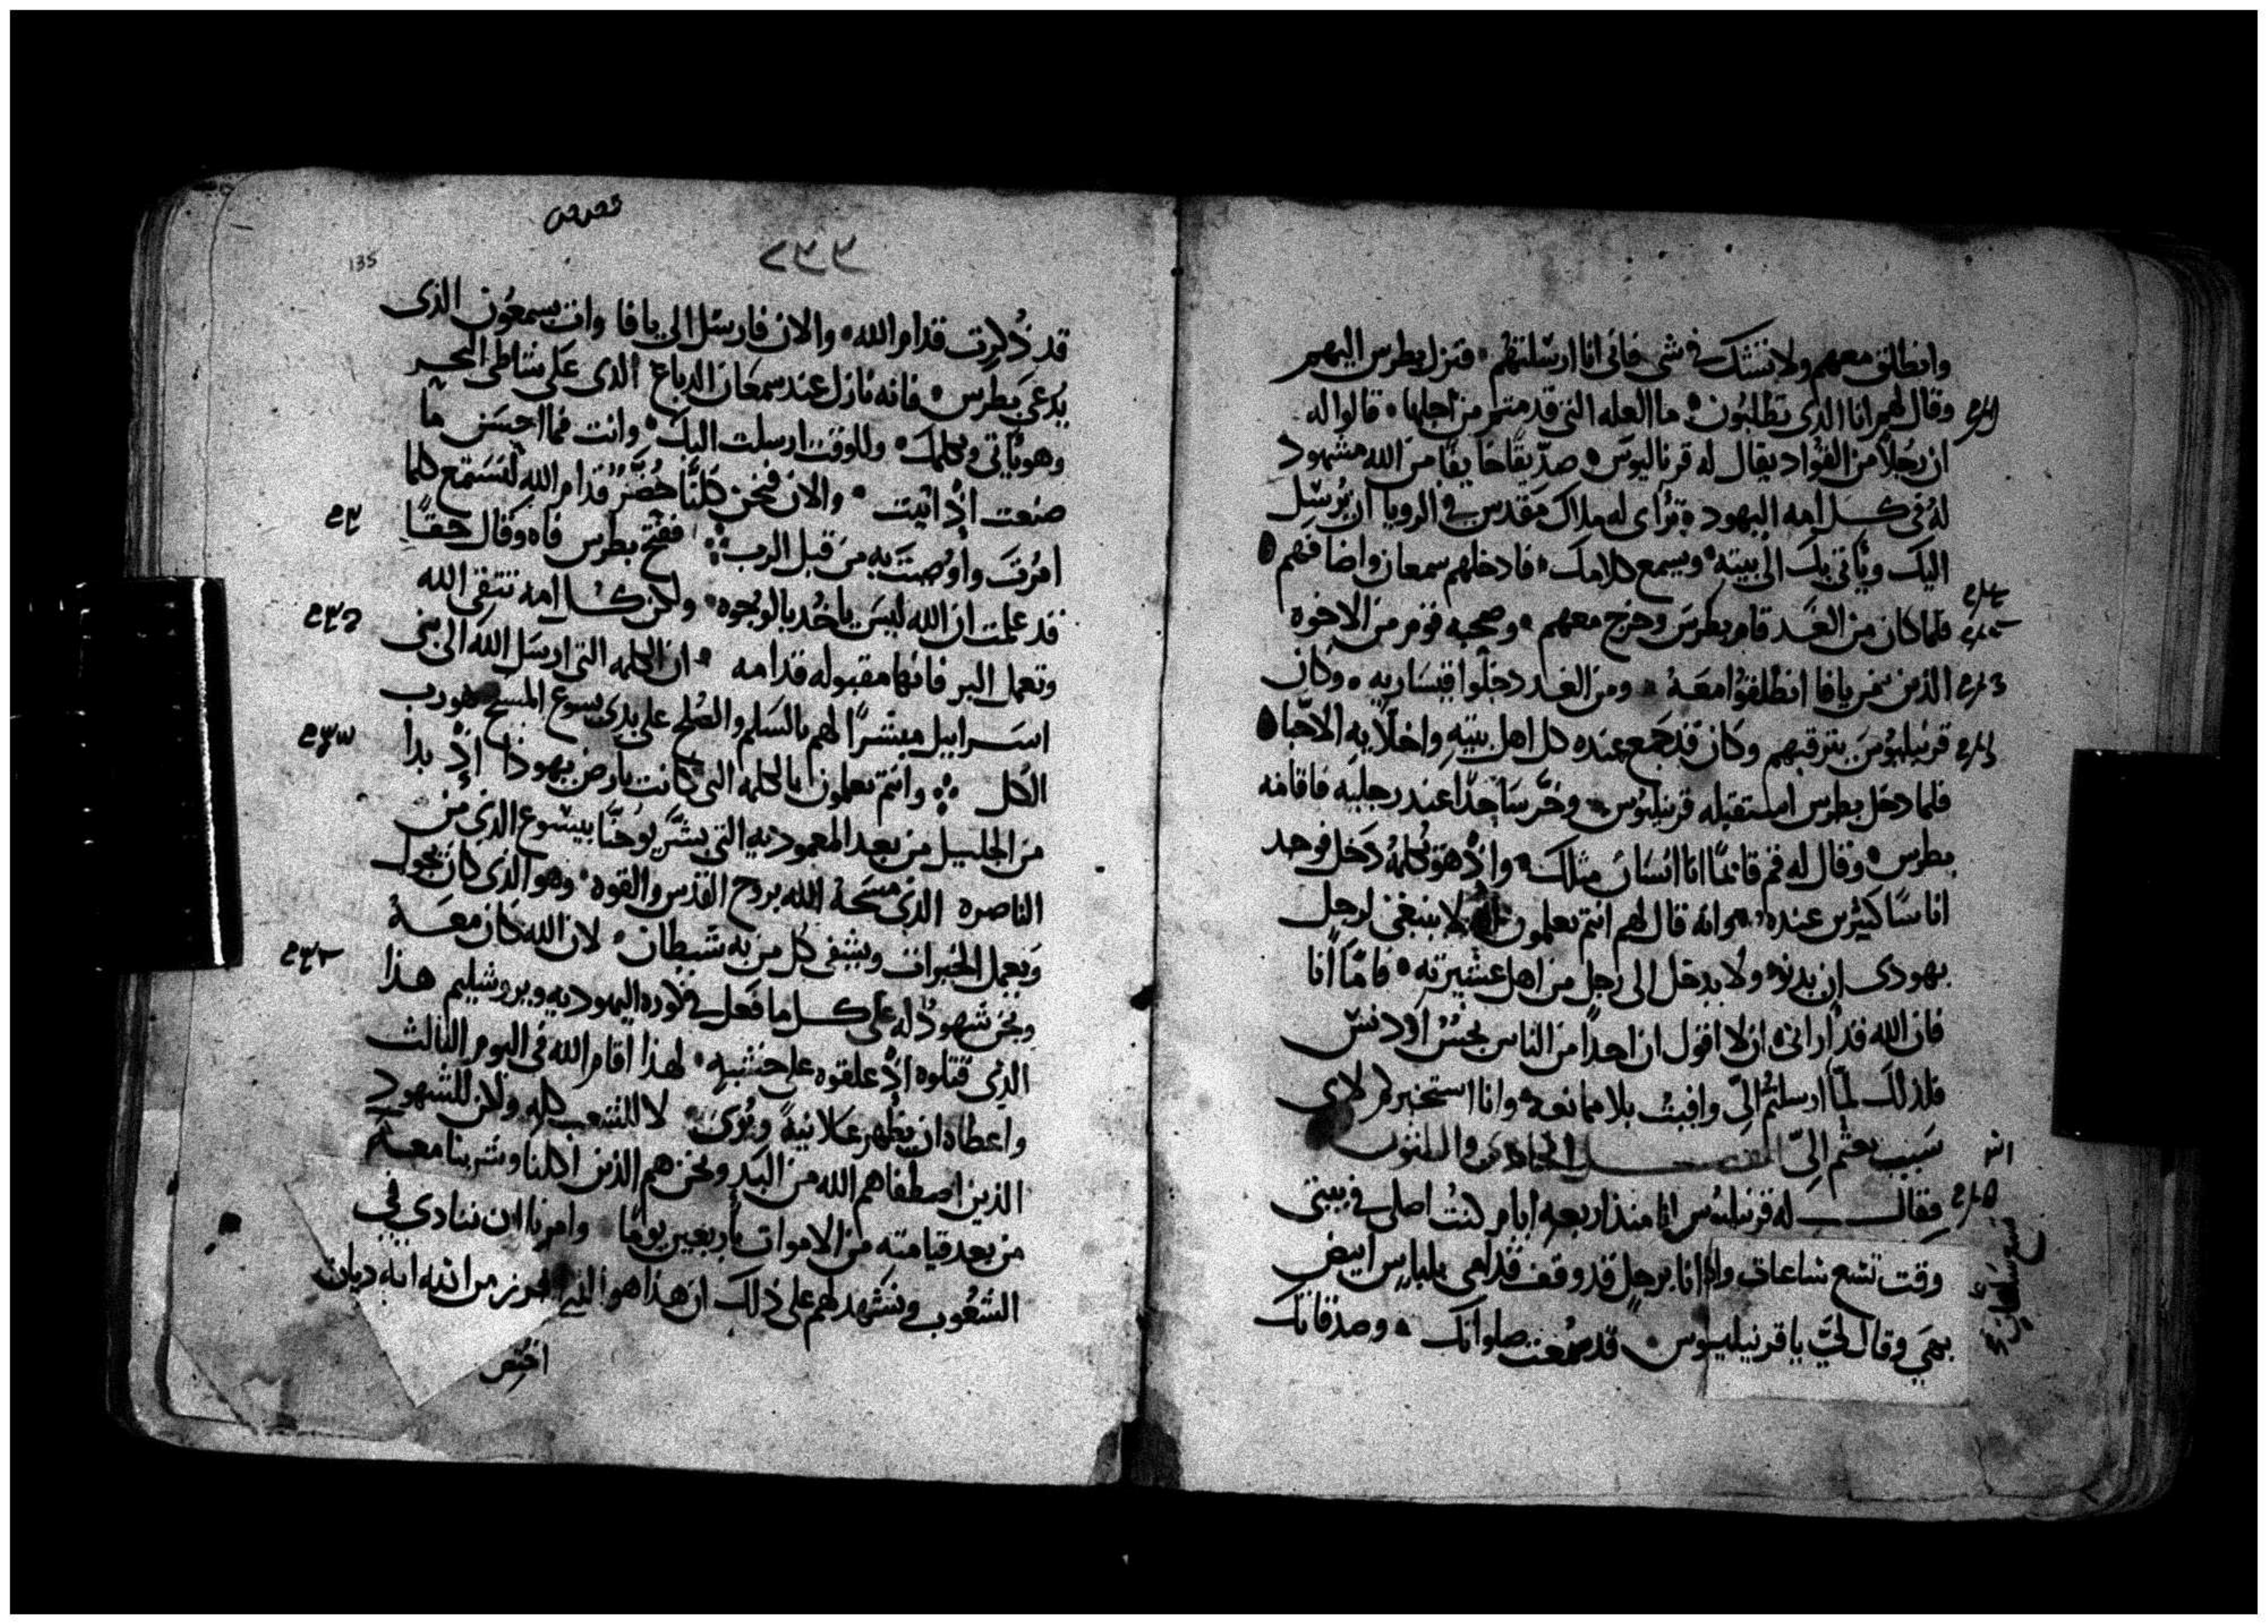 وانطلق معهم ولا تشك في شي فاني انا ارسلتهم فنزل بطرس اليهم
وقال لهم انا الدي تطلبون ما العله التي قدمتم من اجلها قالوا له
ان رجلاً من القواد يقال له قرناليوس صدّيقًا خايفًا من الله مشهود
له في كل امه اليهود تراى له ملاك مقدس في الرويا ان يرسل
اليك وياتي بك الى بيته ويسمع كلامك فادخلهم سمعان واضافهم
فلما كان من الغد قام بطرس وخرج معهم وصحبه قوم من الاخوه
الذين من يافا انطلقوا معه ومن الغد دخلوا قيساريه وكان
قرنيليوس يترقبهم وكان قد جمع عنده كل اهل بيته واخلايه الاحبا
فلما دخل بطرس استقبله قرنيليوس وخرّ ساجدًا عند رجليه فاقامه
بطرس وقال له قم قايمًا انا انسان مثلك واذ هو يكلمه دخل فوجد
اناسًا كثيرين عنده وانه قال لهم انتم تعلمون لا ينبغي لرجل
يهودي ان يدنو ولا يدخل الى رجل من اهل عشيرته فامّا انا
فان الله قد اراني ان لا اقول ان احدًا من الناس نجس او دنس
فلذلك لمّا ارسلتم اليّ وافيت بلا ممانعه وانا استخبركم لاي
سبب بعثتم اليّ
فقال له قرنيليوس انا منذ اربعه ايام كنت اصلي في بيتي
وقت تسع ساعات واذا انا برجل قد وقف قدامي بلباس ابيض
بهي وقال لي يا قرنيليوس قد سمعت صلواتك وصدقاتك
135
قد ذُكرت قدام الله والان فارسل الى يافا وات بسمعون الذى
يُدعى بطرس فانه نازل عند سمعان الدباغ الذى على شاطى البحر
وهو ياتي ويكلمك وللوقت ارسلت اليك وانت فما احسن ما
صنعت اذ اتيت والان فنحن كلنا حُضّر قدام الله لنستمع كلما
امرت واوصيت به من قبل الرب ففتح بطرس فاه وقال حقًا
قد علمت ان الله ليس ياخد بالوجوه ولكن كل امه تتقي الله
وتعمل البر فانها مقبوله قدامه ان الكلمه التي ارسل الله الى بني
اسراييل مبشرًا لهم بالسلم والصلح على يدى يسوع المسيح هو رب
الكل وانتم تعلمون بالكلمه التي كانت بارض يهوذا اذ بدا
من الجليل من بعد المعموديه التي بشّر يوحنّا بيسوع الذي من
الناصره الذي مسحه الله بروح القدس والقوه وهو الذي كان يجول
ويعمل الخيرات ويشفى كل من به شيطان لان الله كان معه
ونحن شهود له على كل ما فعل في كوره اليهوديه ويروشليم هذا
الذي قتلوه اذ علقوه على خشبه لهذا اقام الله في اليوم الثالث
واعطاه ان يظهر علانيةً ويُرى لا للشعب كله ولكن للشهود
الذين اصطفاهم الله من البد ونحن هم الذين اكلنا وشربنا معه
من بعد قيامته من الاموات باربعين يومًا وامرنا ان ننادي في
الشعوب ونشهد لهم على ذلك ان هذا هو المفرز من الله انه ديان